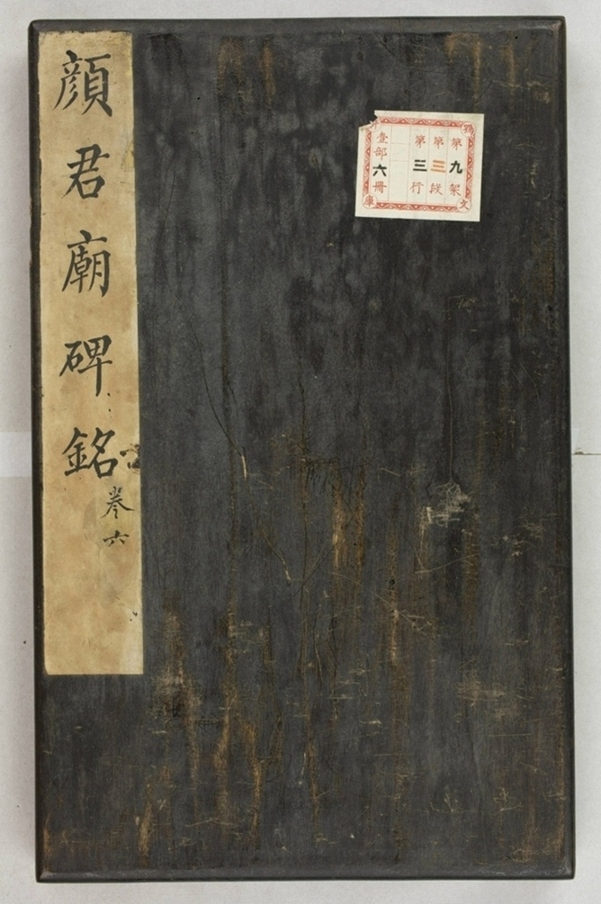 顔君廟碑銘
卷六
鶚文庫
第九架
第三段
第三行
壹部六冊